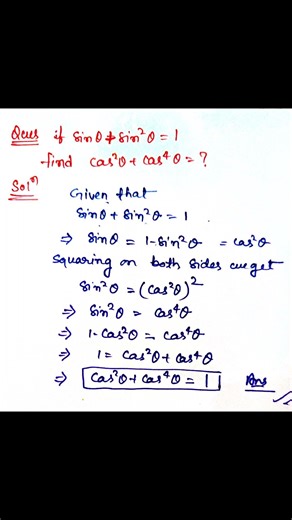 Ques if sinθ + sin²θ = 1
find cos²θ + cos⁴θ = ?
Solⁿ)
Given that
sinθ + sin²θ = 1
⇒ sinθ = 1 - sin²θ = cos²θ
Squaring on both sides we get
sin²θ = (cos²θ)²
⇒ sin²θ = cos⁴θ
⇒ 1 - cos²θ = cos⁴θ
⇒ 1 = cos²θ + cos⁴θ
⇒ cos²θ + cos⁴θ = 1 Ans